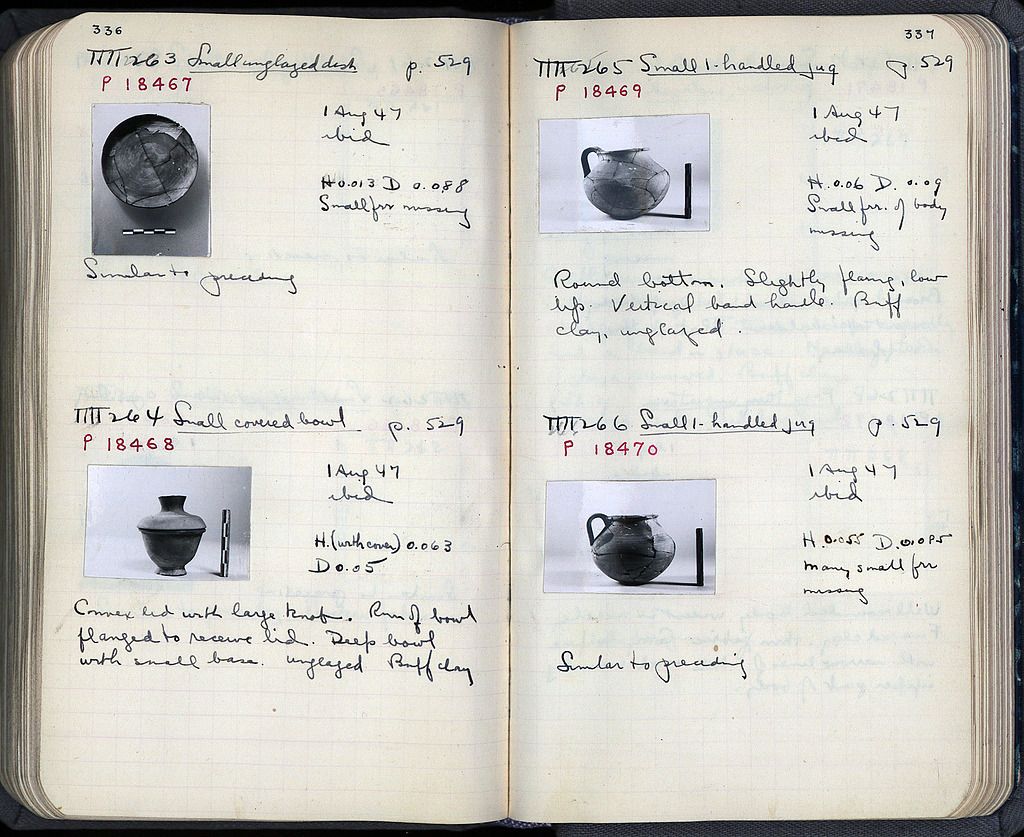 336
ΠΠ 263 Small unglazed dish p. 529
P 18467
1 Aug 47
ibid
H 0.013 D 0.088
Small frr missing
Similar to preceding
ΠΠ 264 Small covered bowl p. 529
P 18468
1 Aug 47
ibid
H. (with cover) 0.063
D 0.05
Convex lid with large knob. Rim of bowl
flanged to receive lid. Deep bowl
with small base. unglazed Buff clay
337
ΠΠ 265 Small 1-handled jug p. 529
P 18469
1 Aug 47
ibid
H. 0.06 D. 0.09
Small frr. of body
missing
Round bottom. Slightly flaring, low
lip. Vertical band handle. Buff
clay, unglazed.
ΠΠ 266 Small 1-handled jug p. 529
P 18470
1 Aug 47
ibid
H. 0.055 D. 0.085
Many small frr
missing
Similar to preceding